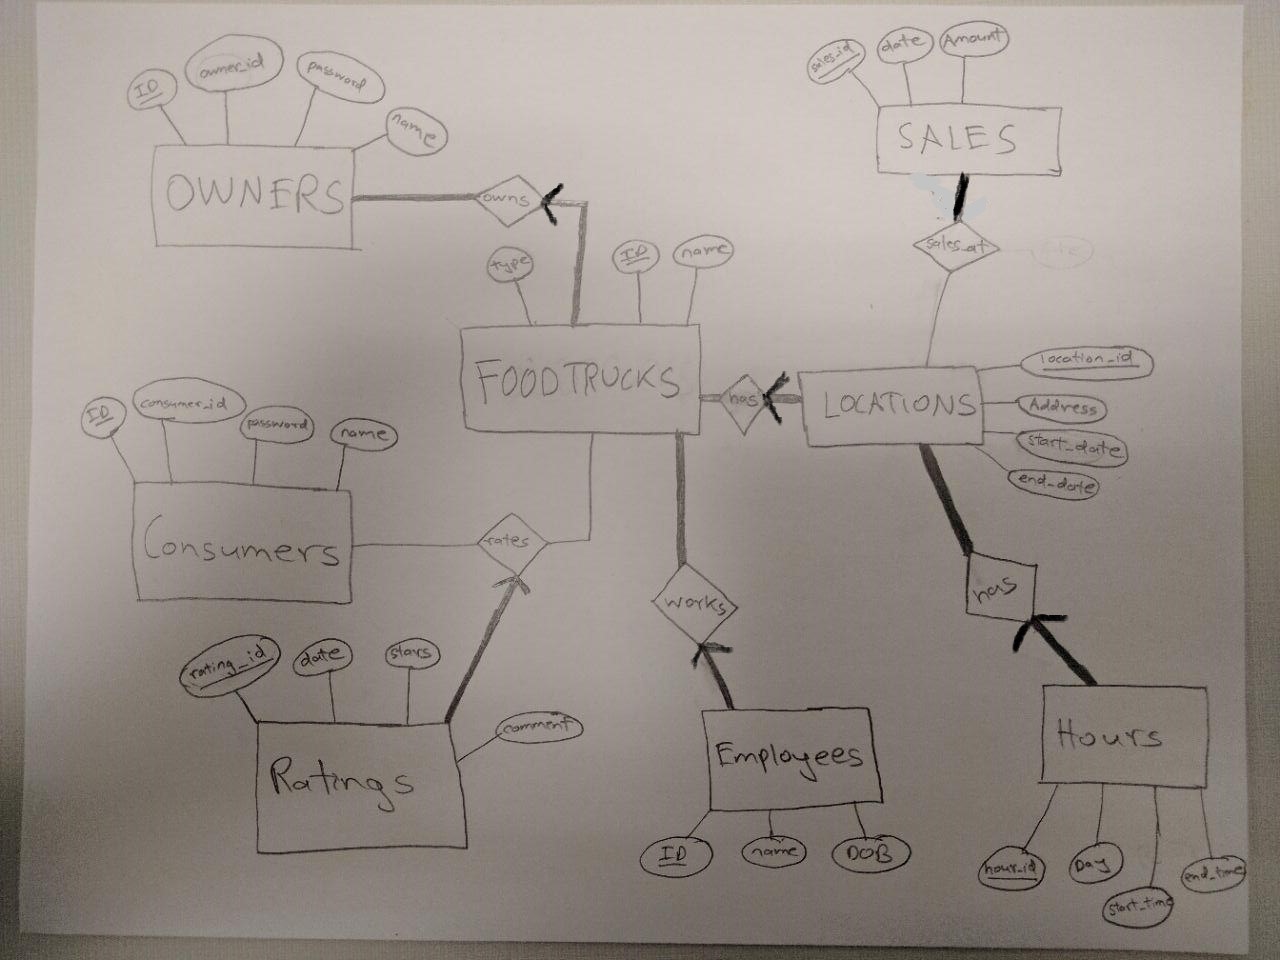 sales_id
date
Amount
SALES
ID
owner_id
password
name
OWNERS
owns
sales_at
type
ID
name
FOODTRUCKS
has
LOCATIONS
location_id
Address
start_date
end_date
ID
consumer_id
password
name
Consumers
rates
works
has
rating_id
date
stars
comment
Ratings
Employees
ID
name
DOB
Hours
hour_id
Day
start_time
end_time